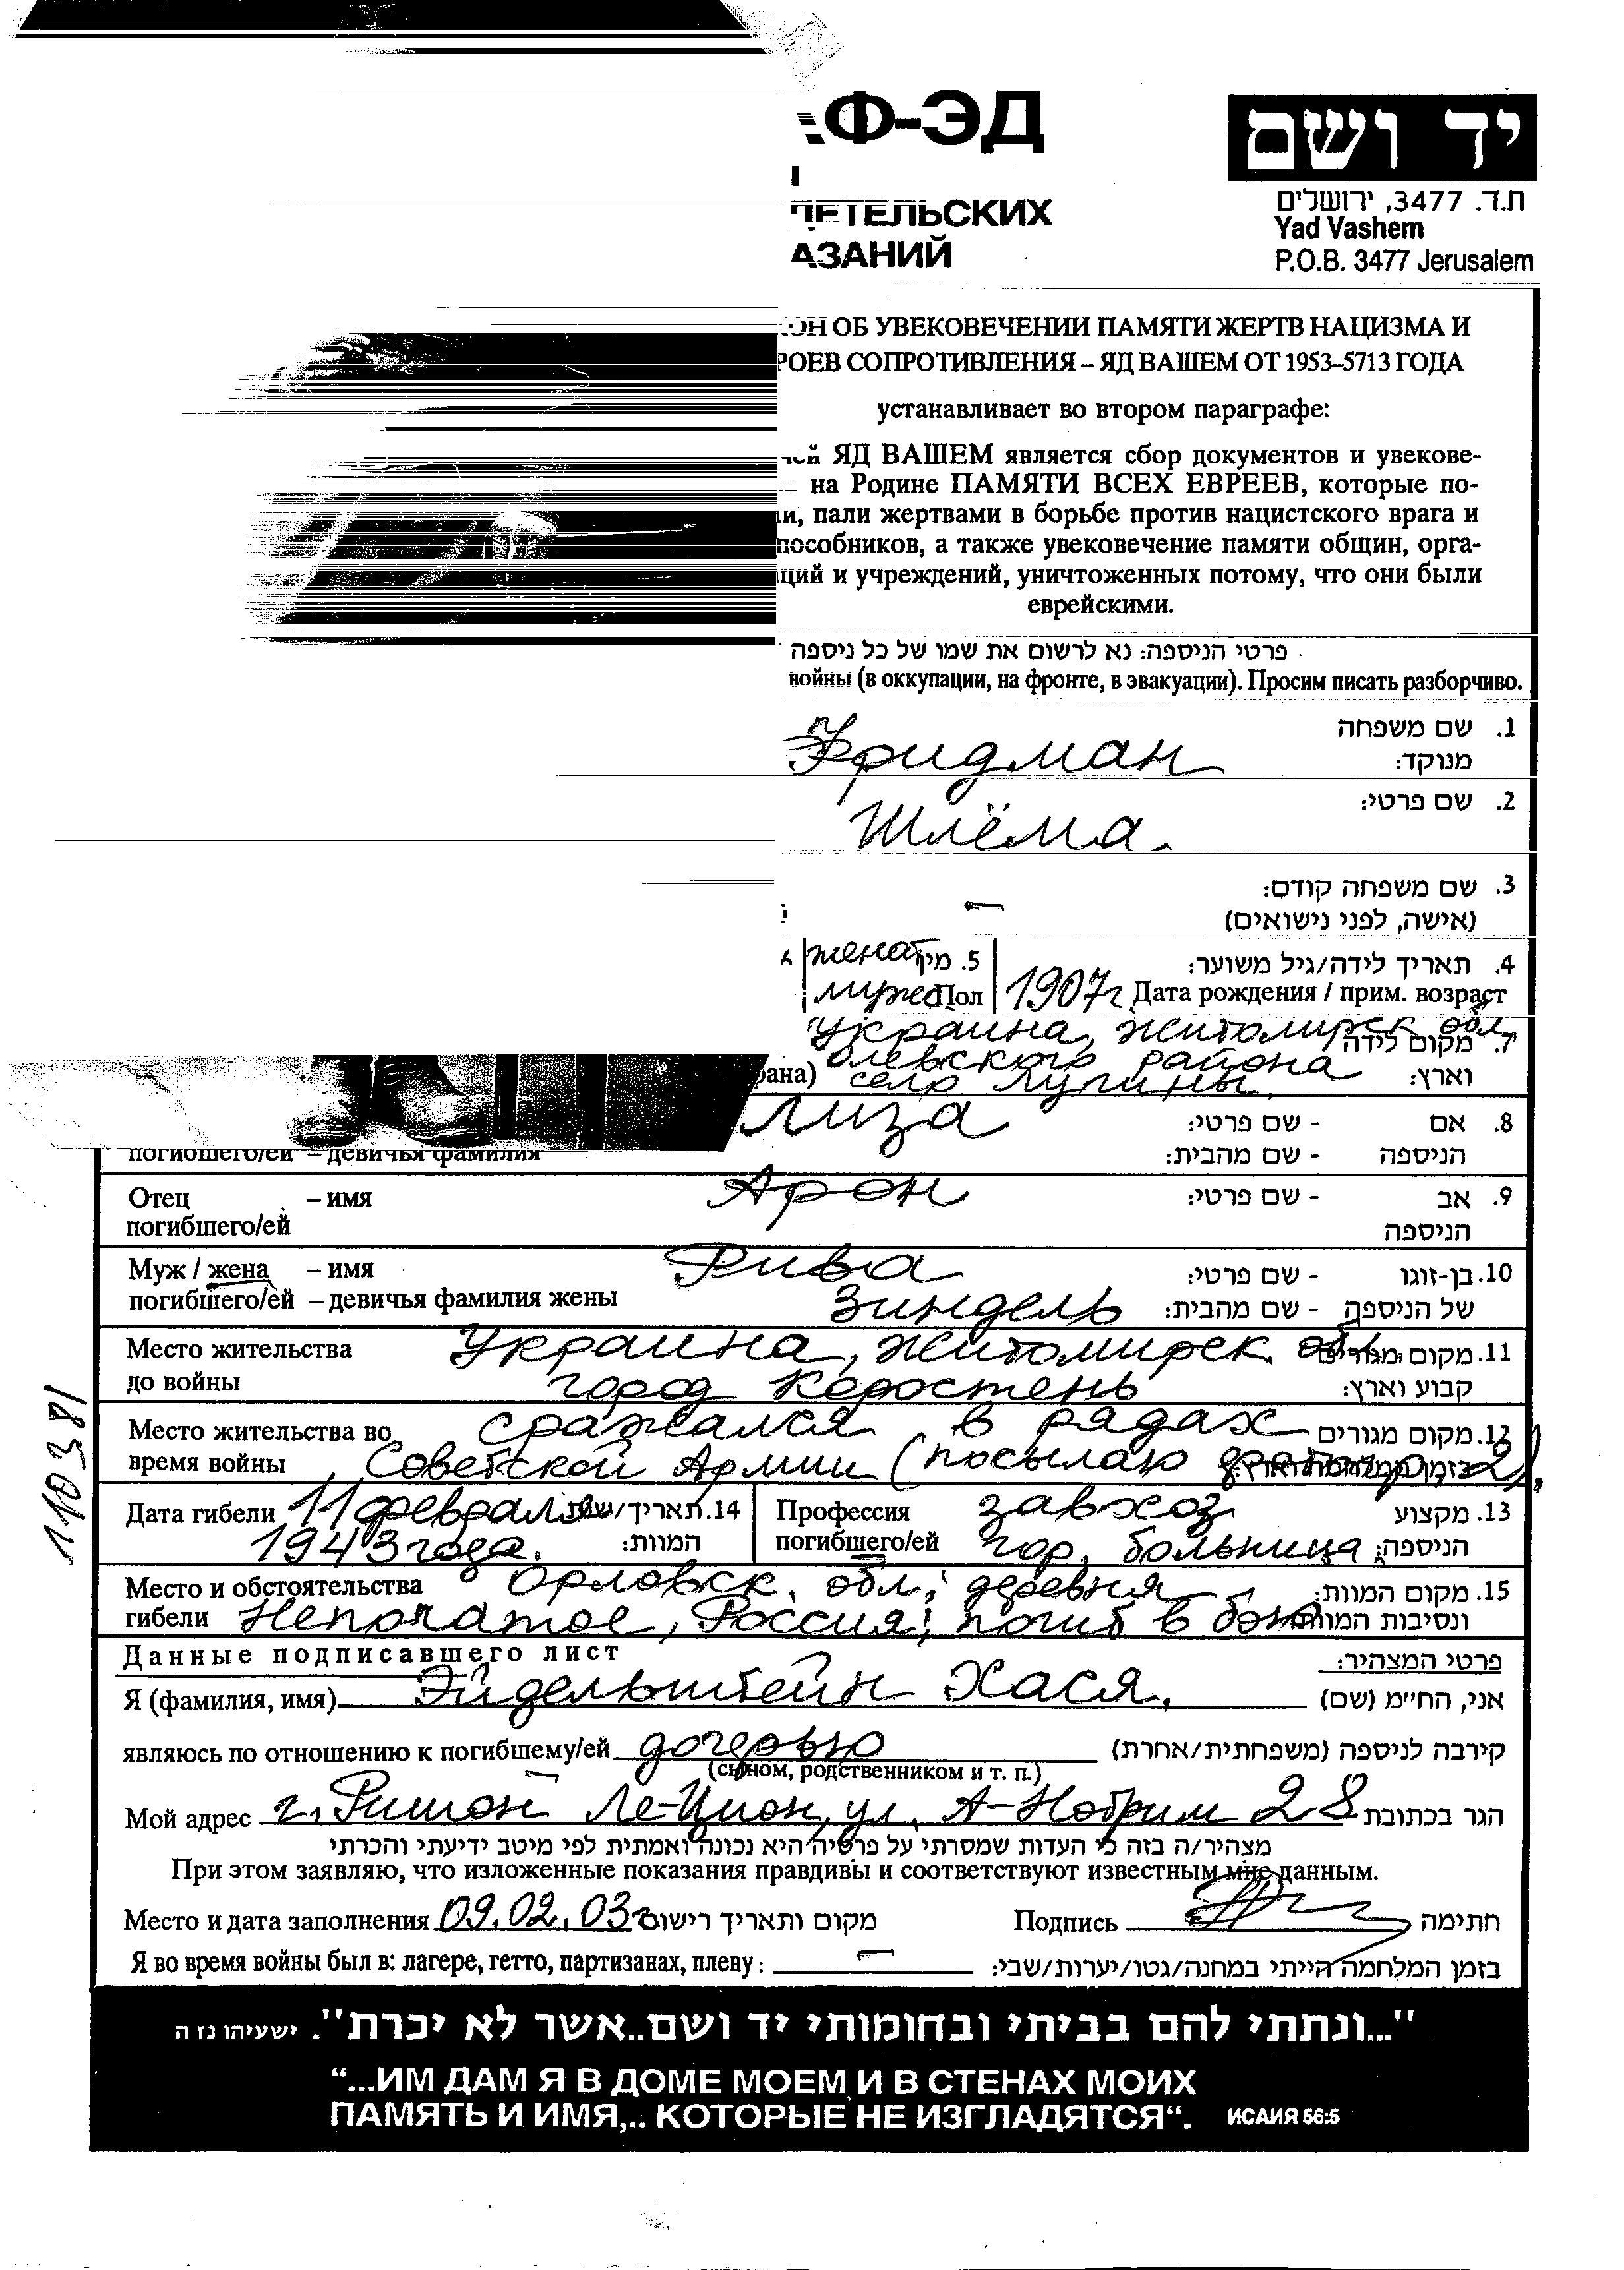 Ф-ЭД
יד ושם
ת.ד. 3477, ירושלים
Yad Vashem
P.O.B. 3477 Jerusalem
ЕТЕЛЬСКИХ
АЗАНИЙ
ОН ОБ УВЕКОВЕЧЕНИИ ПАМЯТИ ЖЕРТВ НАЦИЗМА И
РОЕВ СОПРОТИВЛЕНИЯ – ЯД ВАШЕМ ОТ 1953–5713 ГОДА
устанавливает во втором параграфе:
ей ЯД ВАШЕМ является сбор документов и увекове-
на Родине ПАМЯТИ ВСЕХ ЕВРЕЕВ, которые по-
и, пали жертвами в борьбе против нацистского врага и
пособников, а также увековечение памяти общин, орга-
ций и учреждений, уничтоженных потому, что они были
еврейскими.
פרטי הניספה: נא לרשום את שמו של כל ניספה
войны (в оккупации, на фронте, в эвакуации). Просим писать разборчиво.
1. שם משפחה
מנוקד:
Фридман
2. שם פרטי:
Шлёма
3. שם משפחה קודם:
(אישה, לפני נישואים)
–
4. תאריך לידה/גיל משוער:
Дата рождения / прим. возраст 1907г
5. מין
Пол
женат
муж
7. מקום לידה
וארץ:
рана)
Украина, Житомирск обл
олевского района
село Лугины
8. אם - שם פרטי:
הניספה - שם מהבית:
Лиза
погибшего/ей – девичья фамилия
Отец – имя Арон 9. אב - שם פרטי:
погибшего/ей הניספה
Муж / жена – имя Рива 10. בן-זוגו - שם פרטי:
погибшего/ей – девичья фамилия жены Зиндель של הניספה - שם מהבית:
Место жительства Украина, Житомирск. обл. 11. מקום מגורים
до войны город Коростень קבוע וארץ:
Место жительства во сражался в рядах 12. מקום מגורים
время войны Советской Армии (посылаю
Дата гибели 11 февраля 14. תאריך/שנת
1943 года. המוות:
Профессия завхоз 13. מקצוע
погибшего/ей гор. больница הניספה:
Место и обстоятельства Орловск. обл., деревня 15. מקום המוות:
гибели Непочатое, Россия; погиб в бою ונסיבות המוות
Данные подписавшего лист פרטי המצהיר:
Я (фамилия, имя) Эйдельштейн Хася. אני, החי"מ (שם)
являюсь по отношению к погибшему/ей дочерью קירבה לניספה (משפחתית/אחרת)
(сыном, родственником и т. п.)
Мой адрес г. Ришон Ле-Цион, ул. А-Нотрим 28 הגר בכתובת
מצהיר/ה בזה כי העדות שמסרתי על פרטיה היא נכונה ואמתית לפי מיטב ידיעתי והכרתי
При этом заявляю, что изложенные показания правдивы и соответствуют известным мне данным.
Место и дата заполнения 09.02.03г מקום ותאריך רישום Подпись חתימה
Я во время войны был в: лагере, гетто, партизанах, плену: – בזמן המלחמה הייתי במחנה/גטו/יערות/שבי:
110381
"...ונתתי להם בביתי ובחומותי יד ושם..אשר לא יכרת". ישעיהו נז ה
“...ИМ ДАМ Я В ДОМЕ МОЕМ И В СТЕНАХ МОИХ
ПАМЯТЬ И ИМЯ,.. КОТОРЫЕ НЕ ИЗГЛАДЯТСЯ“. ИСАИЯ 56:5